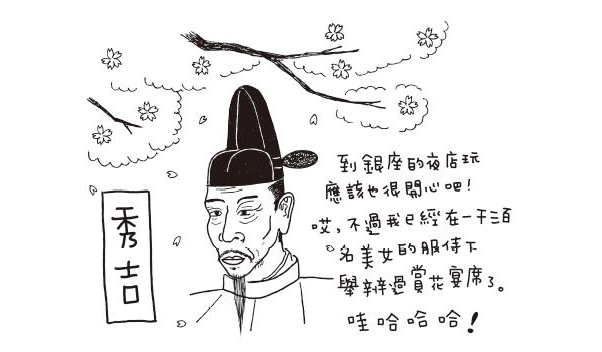 秀吉
到銀座的夜店玩
應該也很開心吧！
哎，不過我已經在一千三百
名美女的服侍下
舉辦過賞花宴席了。
哇哈哈哈！